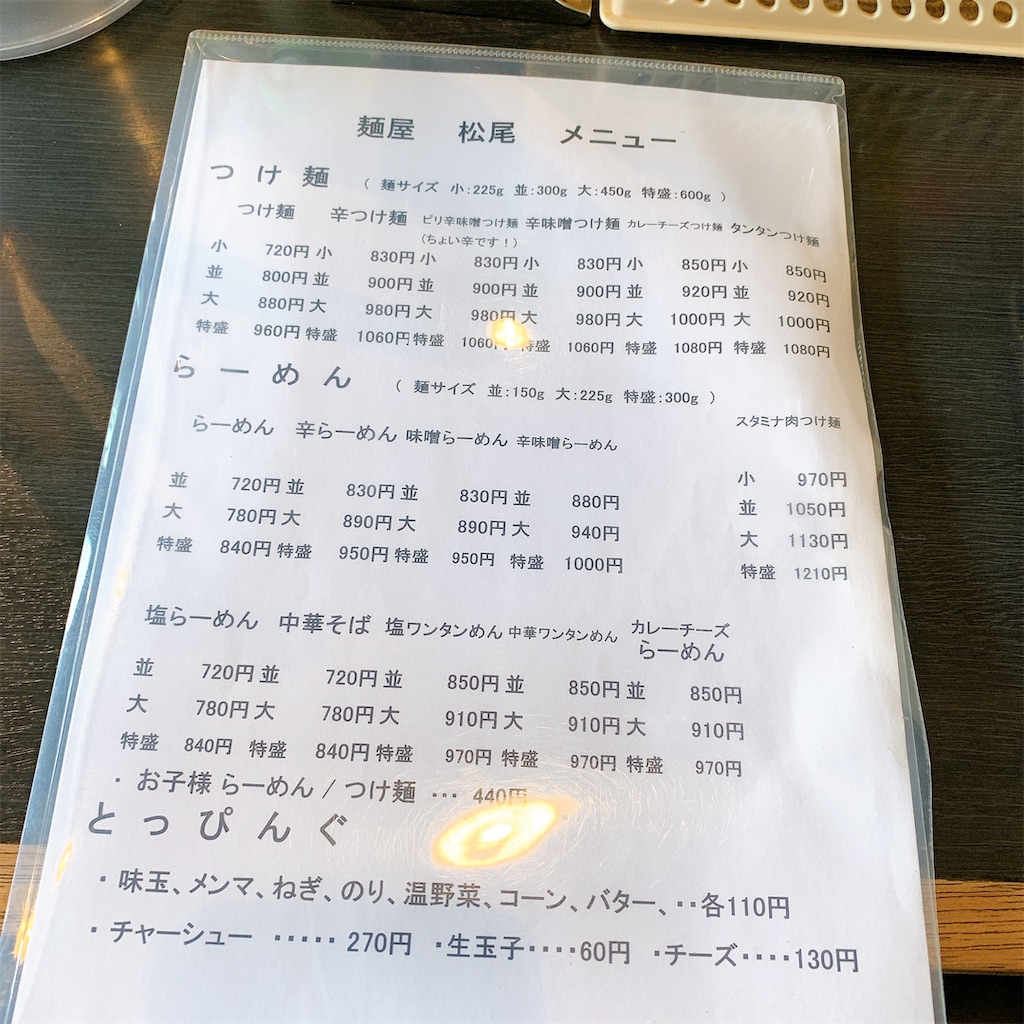 麺屋 松尾 メニュー
つけ麺 （ 麺サイズ 小:225g 並:300g 大:450g 特盛:600g ）
つけ麺 辛つけ麺 ピリ辛味噌つけ麺 辛味噌つけ麺 カレーチーズつけ麺 タンタンつけ麺
（ちょい辛です！）
小 720円 小 830円 小 830円 小 830円 小 850円 小 850円
並 800円 並 900円 並 900円 並 900円 並 920円 並 920円
大 880円 大 980円 大 980円 大 980円 大 1000円 大 1000円
特盛 960円 特盛 1060円 特盛 1060円 特盛 1060円 特盛 1080円 特盛 1080円
らーめん （ 麺サイズ 並:150g 大:225g 特盛:300g ）
スタミナ肉つけ麺
らーめん 辛らーめん 味噌らーめん 辛味噌らーめん
並 720円 並 830円 並 830円 並 880円 小 970円
大 780円 大 890円 大 890円 大 940円 並 1050円
特盛 840円 特盛 950円 特盛 950円 特盛 1000円 大 1130円
特盛 1210円
塩らーめん 中華そば 塩ワンタンめん 中華ワンタンめん カレーチーズ
らーめん
並 720円 並 720円 並 850円 並 850円 並 850円
大 780円 大 780円 大 910円 大 910円 大 910円
特盛 840円 特盛 840円 特盛 970円 特盛 970円 特盛 970円
・ お子様 らーめん / つけ麺 … 440円
とっぴんぐ
・味玉、メンマ、ねぎ、のり、温野菜、コーン、バター、‥各110円
・チャーシュー ‥‥‥ 270円 ・生玉子‥‥60円 ・チーズ‥‥130円